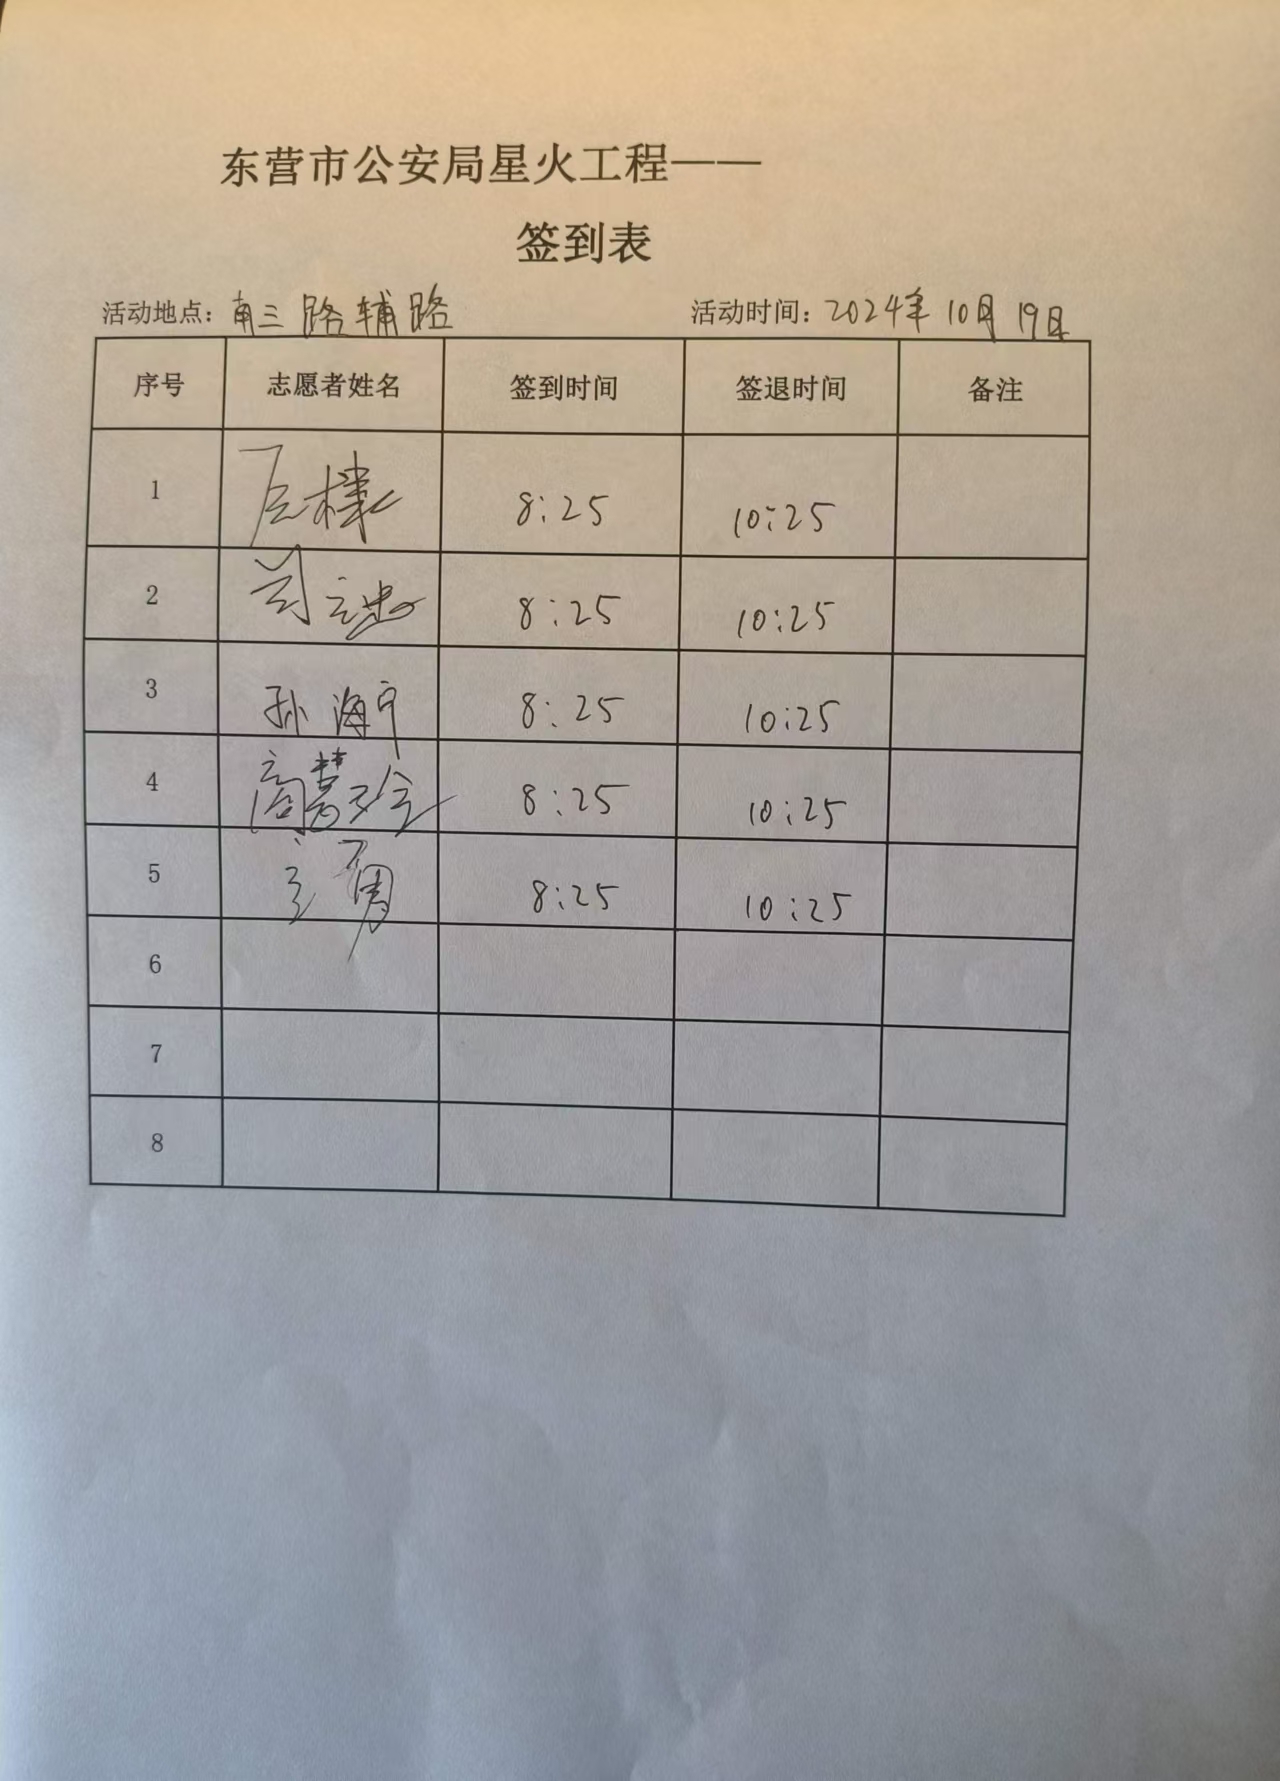 东营市公安局星火工程——
签到表
活动地点：南三路辅路 活动时间：2024年10月19日
序号 志愿者姓名 签到时间 签退时间 备注
1 8:25 10:25
2 8:25 10:25
3 孙海宁 8:25 10:25
4 高慧玲 8:25 10:25
5 8:25 10:25
6
7
8